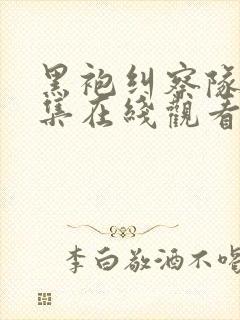 黑袍纠察队
集在綫觀看
李白敬酒不喝